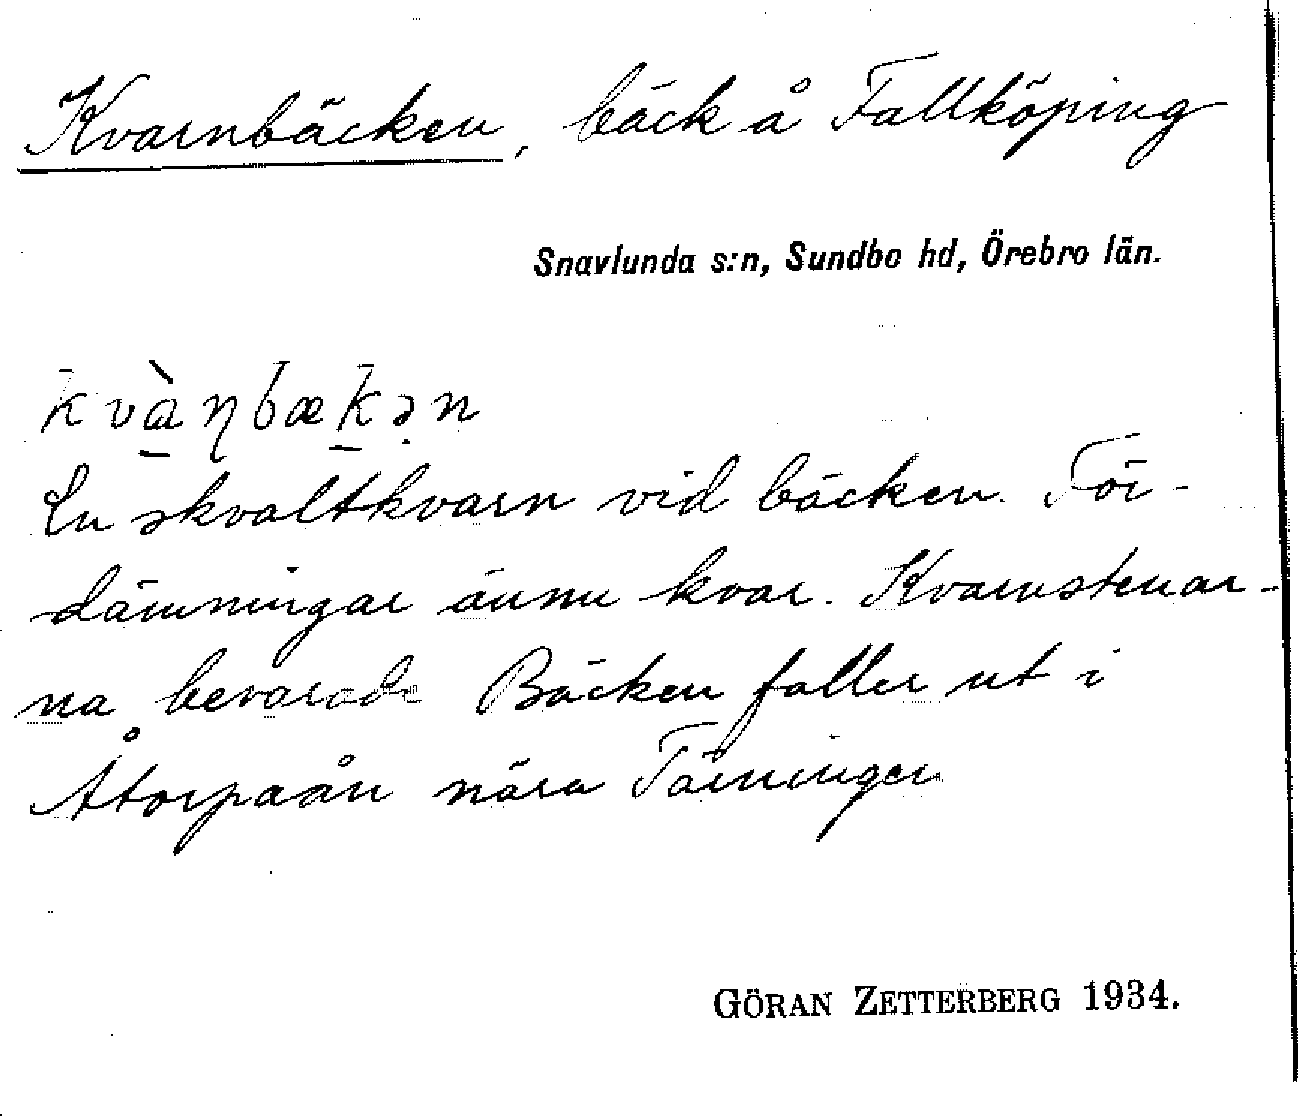 Kvarnbäcken, bäck å Fallköping
Snavlunda s:n, Sundbo hd, Örebro län.
kvàɳbækən
En skvaltkvarn vid bäcken. För-
dämningar ännu kvar. Kvarnstenar-
na bevarade Bäcken faller ut i
Åtorpaån nära Tärningen
GÖRAN ZETTERBERG 1934.